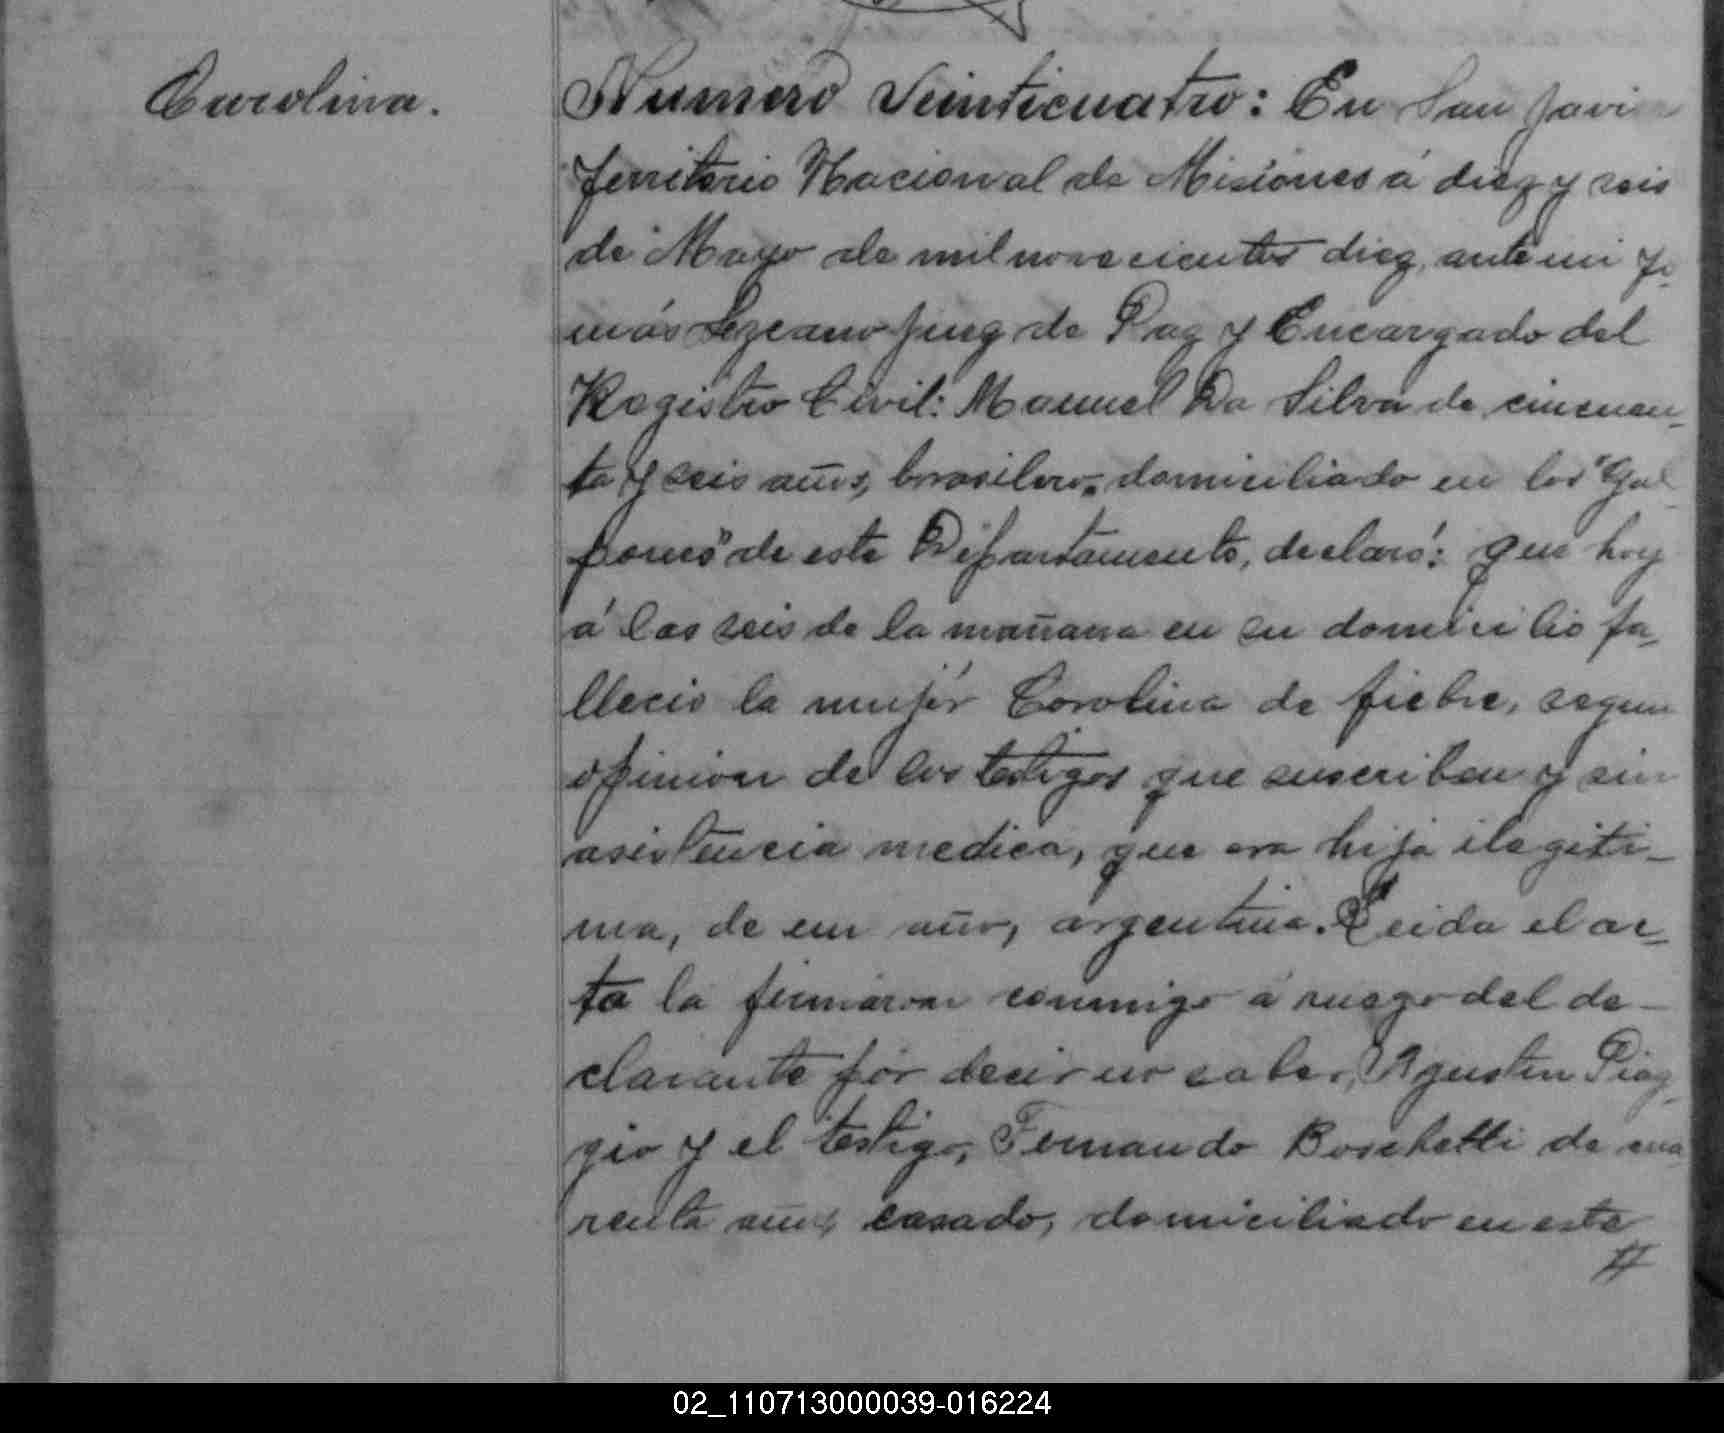 Carolina.
Numero Veinticuatro: En San Javi
Territorio Nacional de Misiones á diez y seis
de Mayo de mil novecientos diez, ante mi To-
más Lezcano Juez de Paz y Encargado del
Registro Civil: Manuel Da Silva de cincuen-
ta y seis años, brasilero, domiciliado en los "Gal
pones" de este Departamento, declaró: que hoy
á las seis de la mañana en su domicilio fa-
llecio la mujer Carolina de fiebre, segun
opinion de los testigos que suscriben y sin
asistencia medica, que era hija ilegiti-
ma, de un año, argentina. Leida el ac-
ta la firmaron conmigo á ruego del de-
clarante por decir no saber, Agustin Piag-
gio y el testigo, Fernando Boschetti de cua
renta años casado, domiciliado en esta
#
02_110713000039-016224